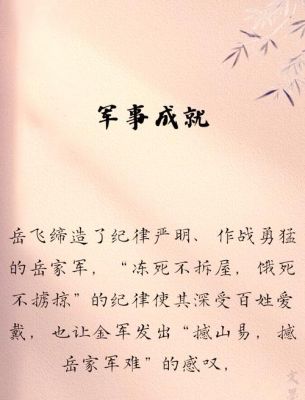 军事成就
岳飞缔造了纪律严明、作战勇猛
的岳家军，“冻死不拆屋，饿死
不掳掠”的纪律使其深受百姓爱
戴，也让金军发出“撼山易，撼
岳家军难”的感叹，